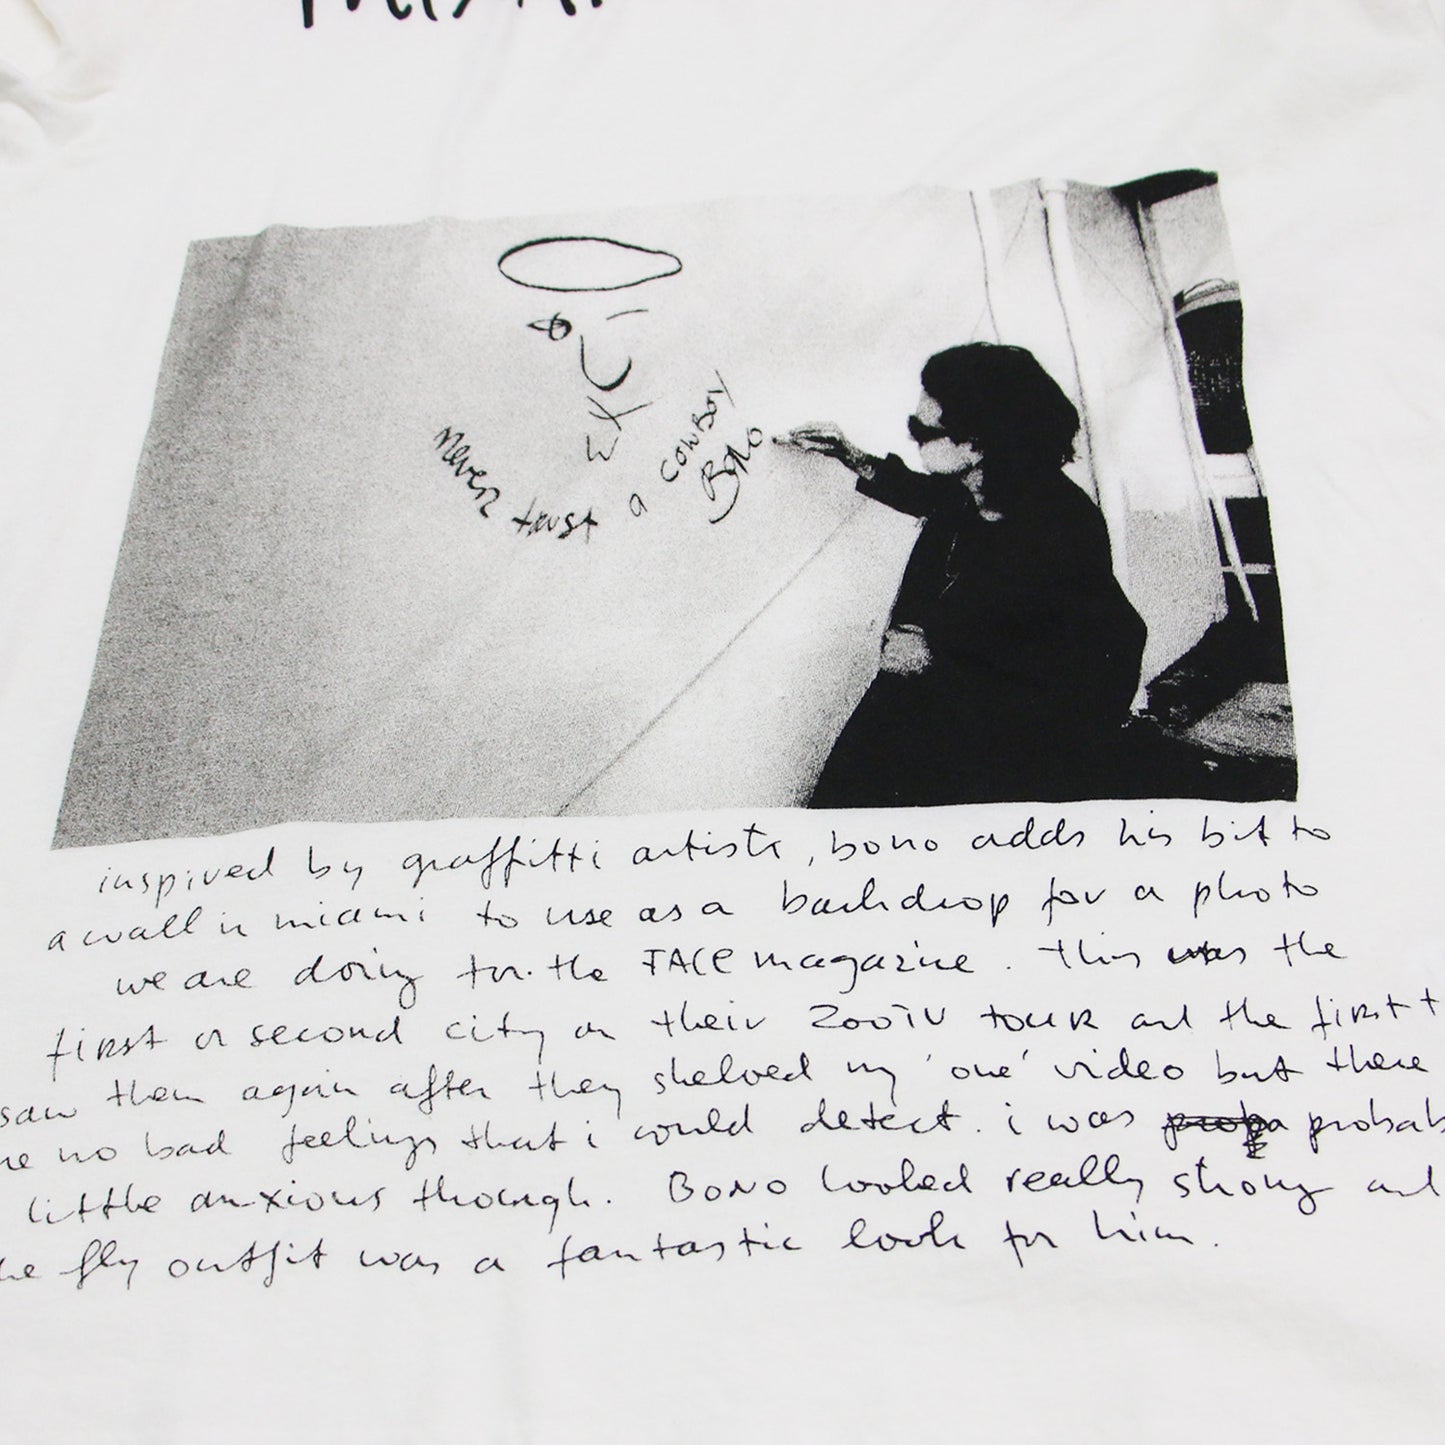 never trust a cowboy
Bono
inspired by graffitti artists, bono adds his bit to
a wall in miami to use as a backdrop for a photo
we are doing for the FACE magazine. this was the
first or second city on their ZOOTV TOUR and the first t
saw them again after they shelved my 'one' video but there
no bad feelings that i could detect. i was probab
little anxious though. BONO looked really strong and
he fly outfit was a fantastic look for him.